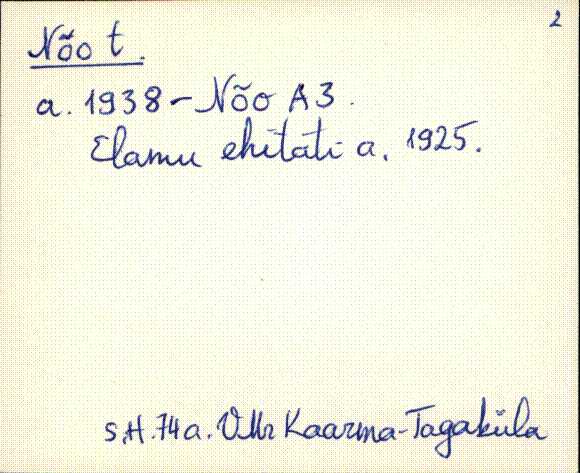 2
Nõo t.
a. 1938 - Nõo A3.
Elamu ehitati a. 1925.
s.H. 74a. VMr Kaarma-Tagaküla